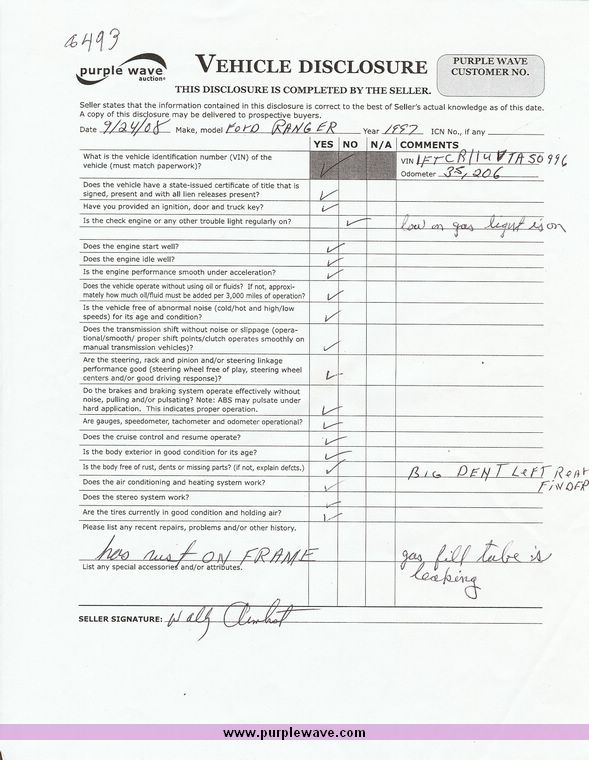 6493
purple wave
auction®
VEHICLE DISCLOSURE
PURPLE WAVE
CUSTOMER NO.
THIS DISCLOSURE IS COMPLETED BY THE SELLER.
Seller states that the information contained in this disclosure is correct to the best of Seller's actual knowledge as of this date.
A copy of this disclosure may be delivered to prospective buyers.
Date 9/24/08 Make, model FORD RANGER Year 1997 ICN No., if any
YES NO N/A COMMENTS
What is the vehicle identification number (VIN) of the
vehicle (must match paperwork)?
VIN 1FTCR14 TA50996
Odometer 35,206
Does the vehicle have a state-issued certificate of title that is
signed, present and with all lien releases present?
Have you provided an ignition, door and truck key?
Is the check engine or any other trouble light regularly on? low on gas light is on
Does the engine start well?
Does the engine idle well?
Is the engine performance smooth under acceleration?
Does the vehicle operate without using oil or fluids? If not, approxi-
mately how much oil/fluid must be added per 3,000 miles of operation?
Is the vehicle free of abnormal noise (cold/hot and high/low
speeds) for its age and condition?
Does the transmission shift without noise or slippage (opera-
tional/smooth/ proper shift points/clutch operates smoothly on
manual transmission vehicles)?
Are the steering, rack and pinion and/or steering linkage
performance good (steering wheel free of play, steering wheel
centers and/or good driving response)?
Do the brakes and braking system operate effectively without
noise, pulling and/or pulsating? Note: ABS may pulsate under
hard application. This indicates proper operation.
Are gauges, speedometer, tachometer and odometer operational?
Does the cruise control and resume operate?
Is the body exterior in good condition for its age?
Is the body free of rust, dents or missing parts? (if not, explain defcts.) BIG DENT LEFT REAR
FINDER
Does the air conditioning and heating system work?
Does the stereo system work?
Are the tires currently in good condition and holding air?
Please list any recent repairs, problems and/or other history.
has rust ON FRAME
gas fill tube is
leaking
List any special accessories and/or attributes.
SELLER SIGNATURE: Wally
www.purplewave.com